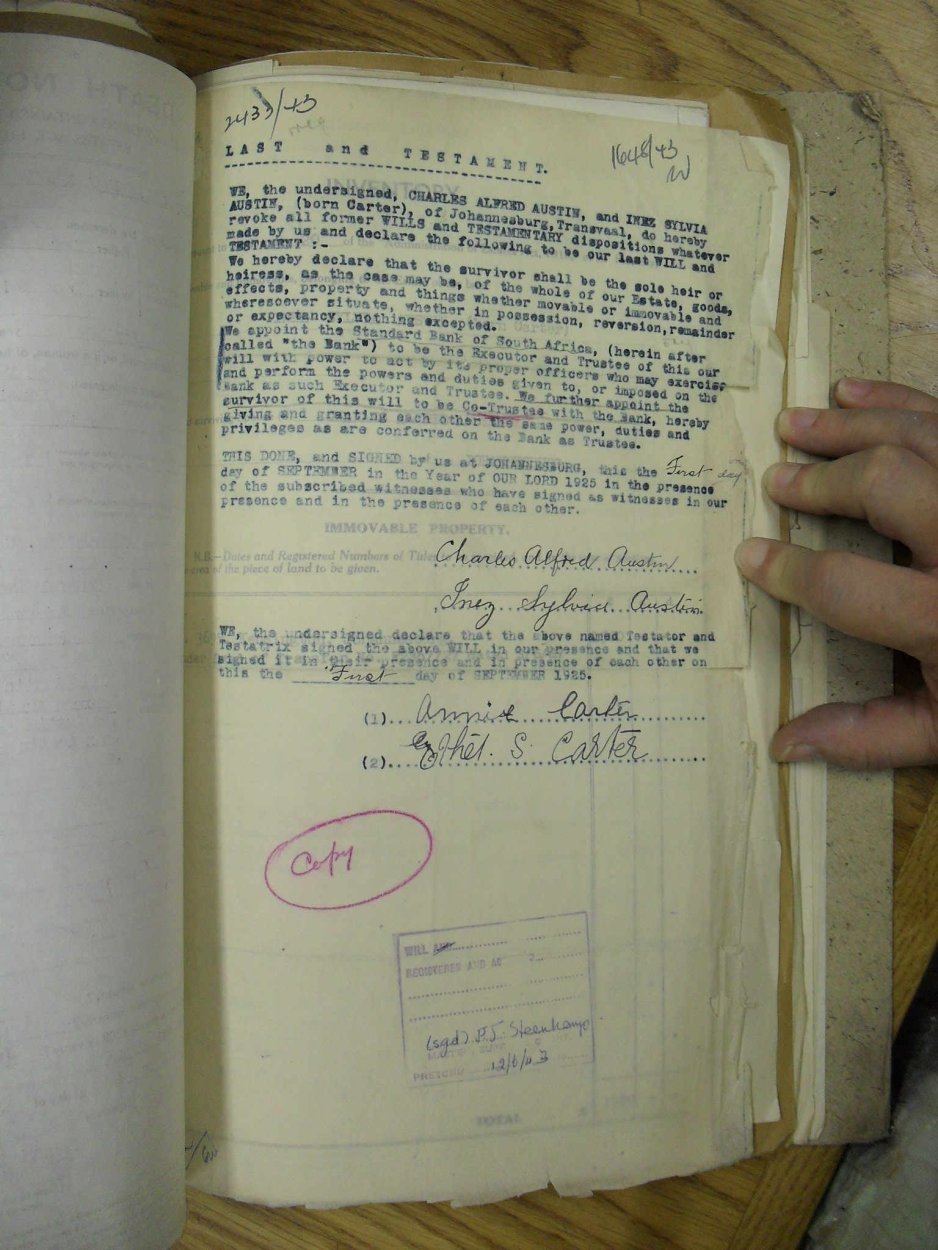 2433/43
1648/43
LAST and TESTAMENT.
WE, the undersigned, CHARLES ALFRED AUSTIN, and INEZ SYLVIA
AUSTIN, (born Carter), of Johannesburg, Transvaal, do hereby
revoke all former WILLS and TESTAMENTARY dispositions whatever
made by us and declare the following to be our last WILL and
TESTAMENT :-
We hereby declare that the survivor shall be the sole heir or
heiress, as the case may be, of the whole of our Estate, goods,
effects, property and things whether movable or immovable and
wheresoever situate, whether in possession, reversion, remainder
or expectancy, nothing excepted.
We appoint the Standard Bank of South Africa, (herein after
called "the Bank") to be the Executor and Trustee of this our
will with power to act by its proper officers who may exercise
and perform the powers and duties given to, or imposed on the
Bank as such Executor and Trustee. We further appoint the
survivor of this will to be Co-Trustee with the Bank, hereby
giving and granting each other the same power, duties and
privileges as are conferred on the Bank as Trustee.
THIS DONE, and SIGNED by us at JOHANNESBURG, this the First day
day of SEPTEMBER in the Year of OUR LORD 1925 in the presence
of the subscribed witnesses who have signed as witnesses in our
presence and in the presence of each other.
IMMOVABLE PROPERTY.
N.B.—Dates and Registered Numbers of Titles
area of the piece of land to be given.
Charles Alfred Austin
Inez Sylvia Austin
WE, the undersigned declare that the above named Testator and
Testatrix signed the above WILL in our presence and that we
signed it in their presence and in presence of each other on
this the First day of SEPTEMBER 1925.
(1) Annie Carter
(2) Ethel. S. Carter
Copy
WILL AND
REGISTERED AND AC
(sgd) P.J. Steenkamp
PRETORIA 12/6/43
TOTAL